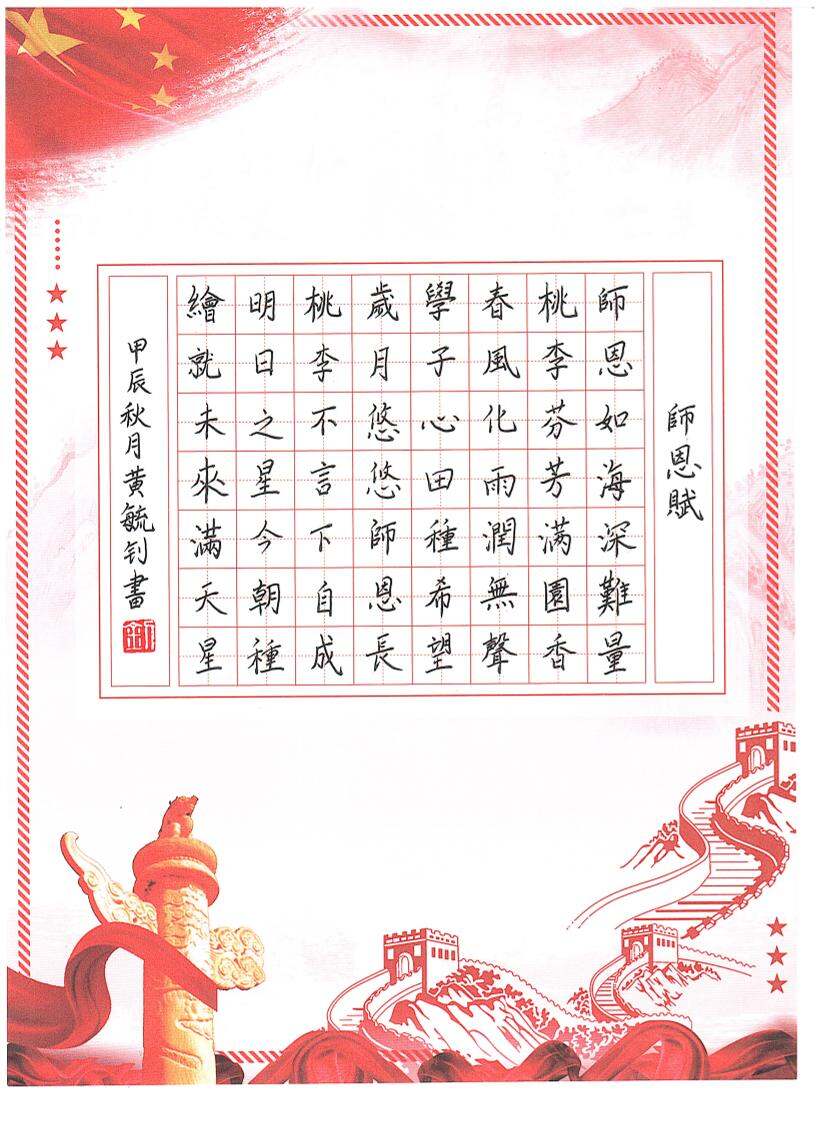 師恩賦
師恩如海深難量
桃李芬芳滿園香
春風化雨潤無聲
學子心田種希望
歲月悠悠師恩長
桃李不言下自成
明日之星今朝種
繪就未來滿天星
甲辰秋月黄毓钊書